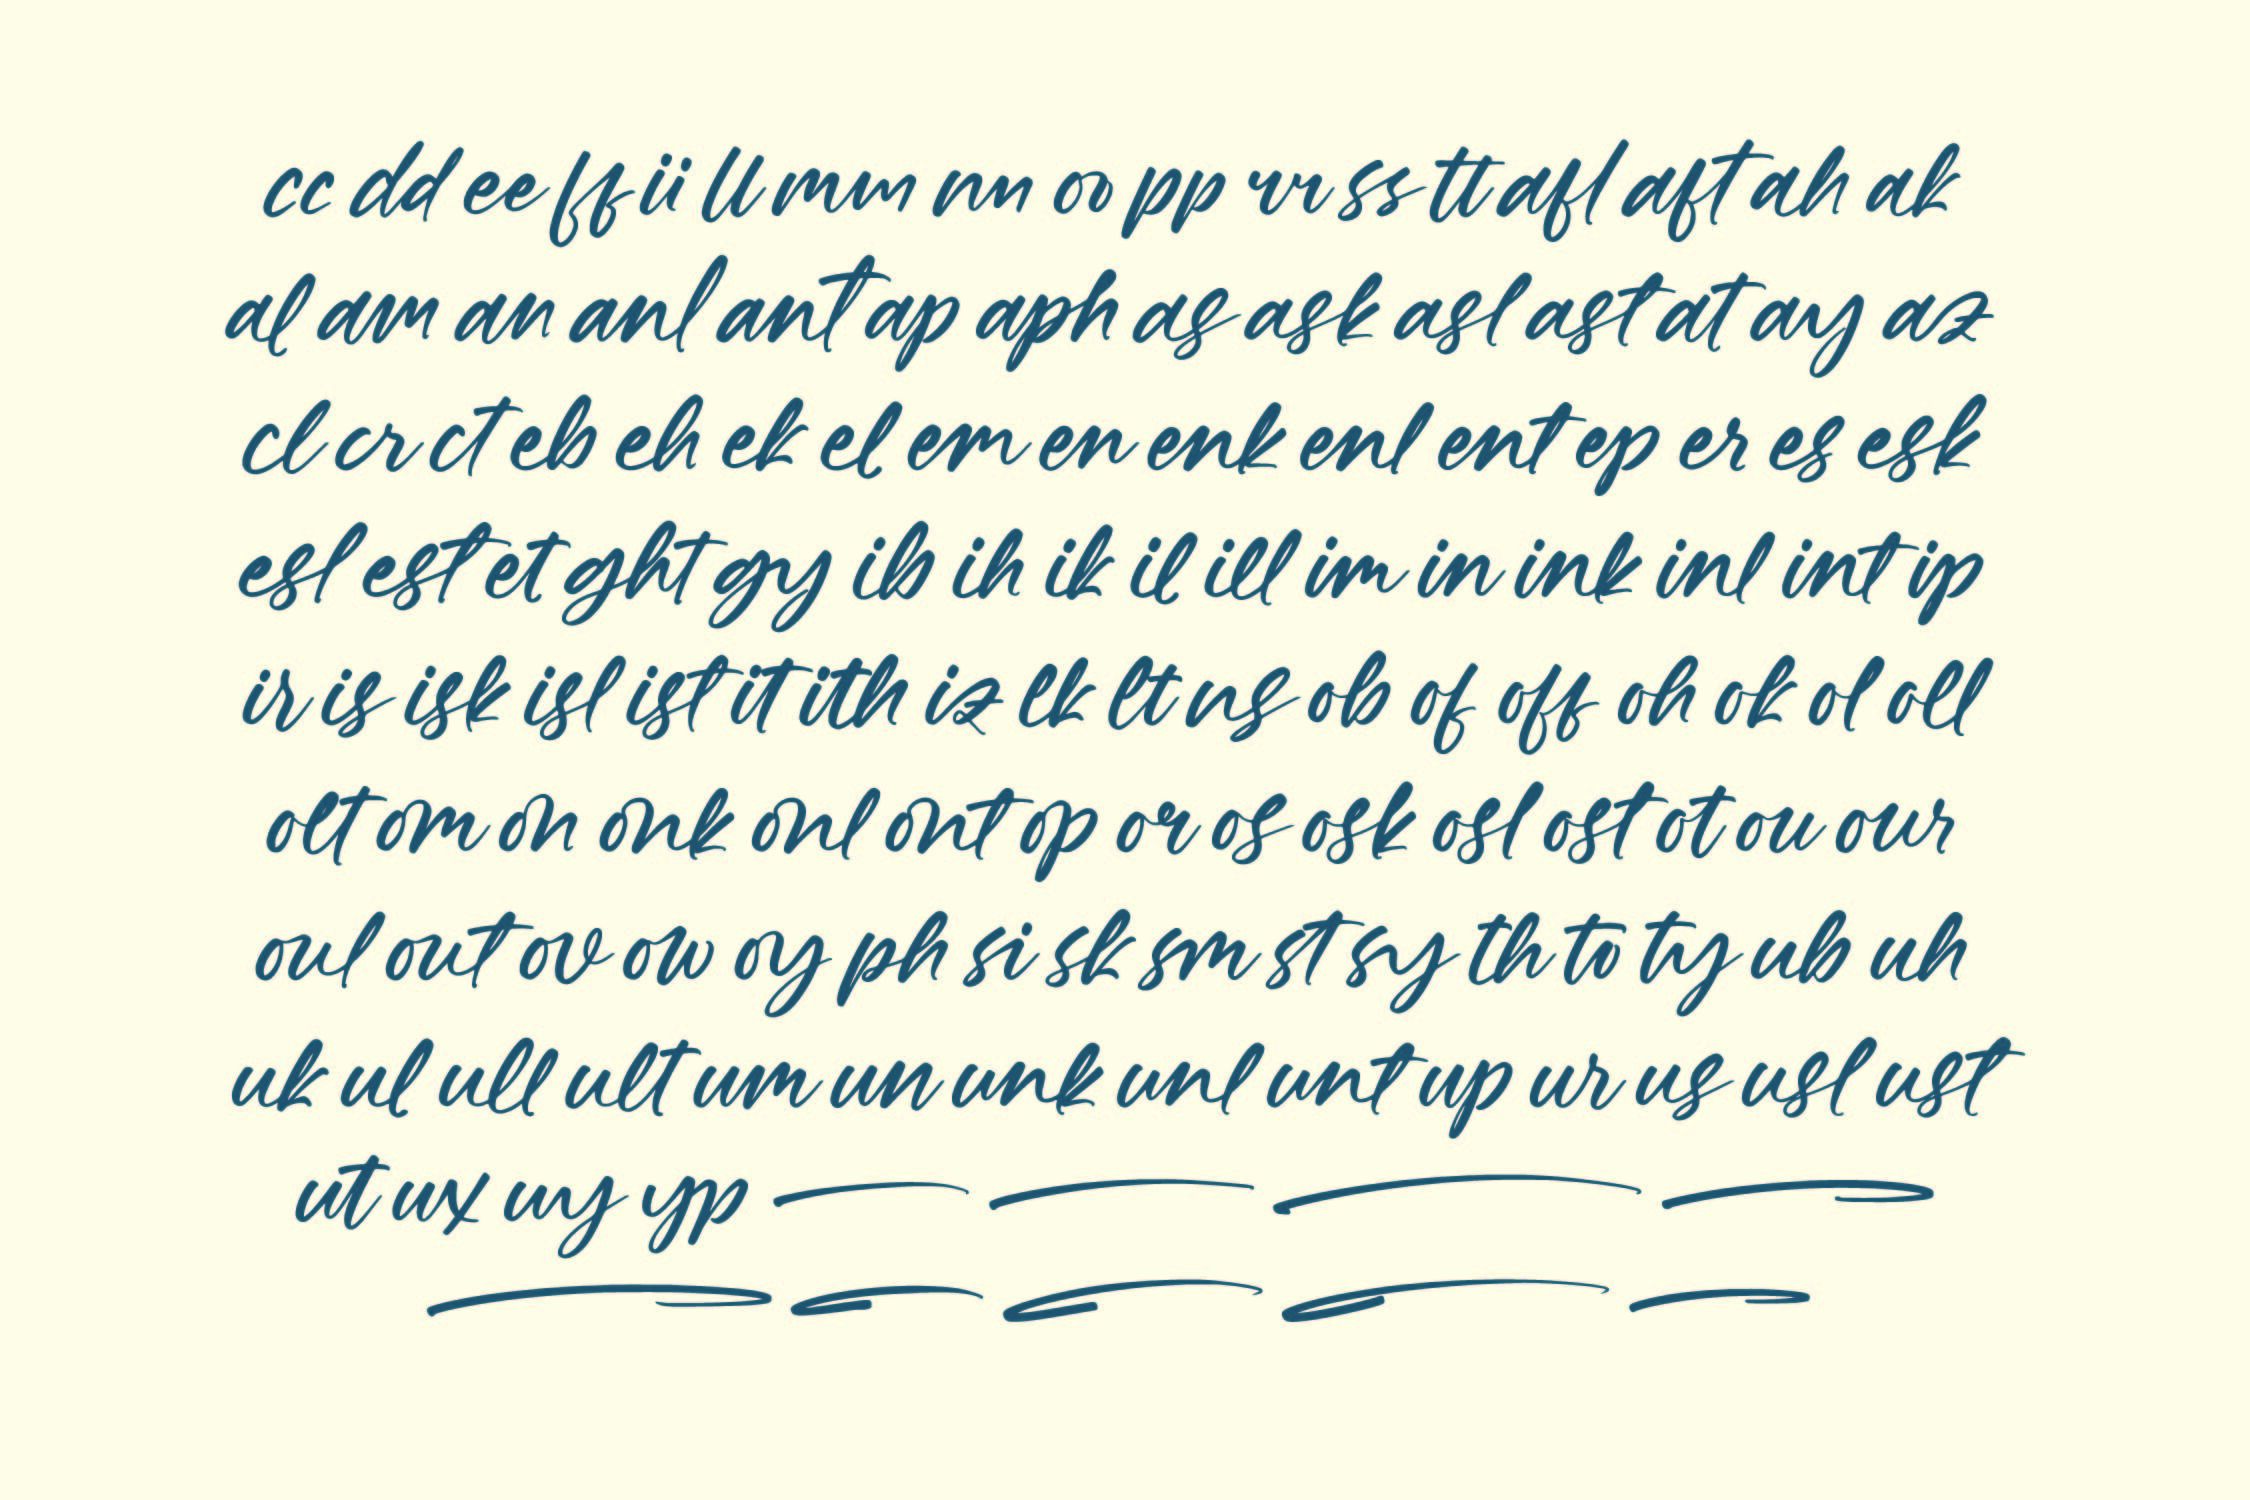 cc dd ee ff ii ll mm nn oo pp rr ss tt afl aft ah ak
al am an anl ant ap aph as ask asl ast at ay az
cl cr ct eb eh ek el em en enk enl ent ep er es esk
esl est et ght gy ib ih ik il ill im in ink inl int ip
ir is isk isl ist it ith iz lk lt ns ob of off oh ok ol oll
olt om on onk onl ont op or os osk osl ost ot ou our
oul out ov ow oy ph si sk sm st sy th to ty ub uh
uk ul ull ult um un unk unl unt up ur us usl ust
ut ux uy yp